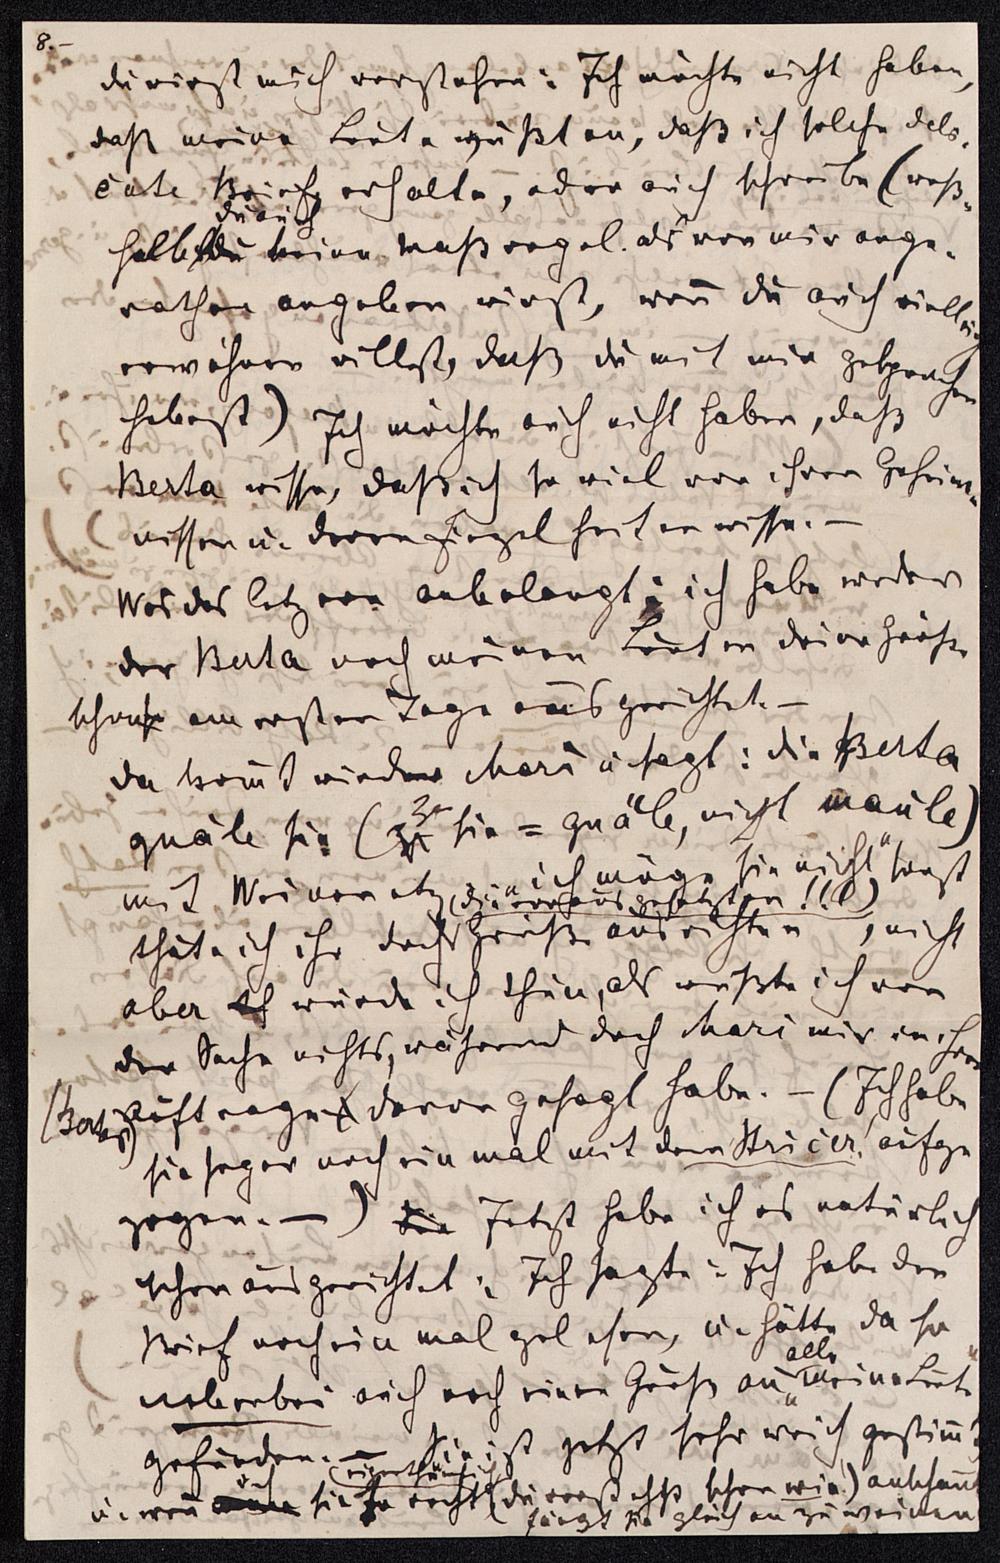 8.–
du wirst mich verstehen: Ich möchte nicht haben,
daß meine Leute wüßten, daß ich solche deli-
cate Briefe erhalte, oder auch schreibe (weß-
halb du auch keine Maßregel als von mir ange-
rathen angeben wirst, wenn du auch vielleicht
erwähnen willst, daß du mit mir gesprochen
habest) Ich möchte auch nicht haben, daß
Berta wisse, daß ich so viel von ihren Geheim-
nissen u. deren Einzelheiten wisse. –
Was das letztere anbelangt: ich habe weder
der Berta noch meinen Leuten deine Grüße
schon am ersten Tage ausgerichtet. –
da kommt wieder Mari u sagt: die Berta
quäle sie ( sie = quäle, nicht maule)
mit Weinen etz, „ich möge sie nicht“ sonst
thäte ich ihr doch Grüße ausrichten (die !!!), nicht
aber würde ich thun, als wüßte ich von
der Sache nichts, während doch Mari mir in ihrem
(Bertas) Auftrage davon gesagt habe. – (Ich habe
sie sogar noch einmal mit dem Stricer! aufge
zogen. –) Jetzt habe ich es natürlich
schon ausgerichtet: Ich sagte: Ich habe den
Brief noch ein mal gelesen, u. hätte da so
nebenbei auch noch einen Gruß an „alle meine Leute“
gefunden. – Sie ist jetzt sehr weich gestimmt
u. wenn ich sie so recht eigenthümlich (du verstehst schon wie) anschaue
fängt sie gleich an zu weinen